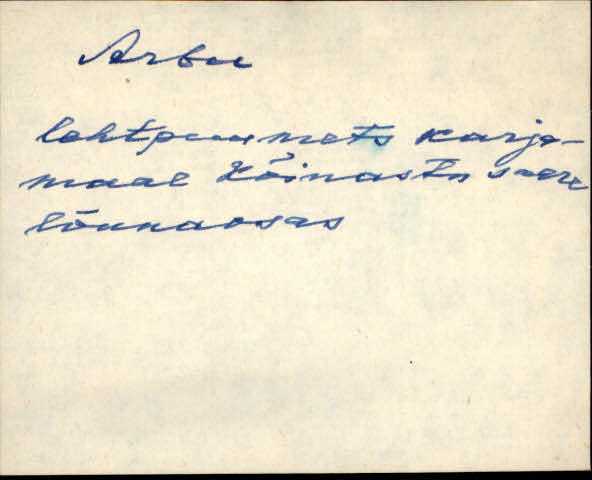 Arbu
lehtpuumets karja-
maal Kõinastu saare
lõunaosas